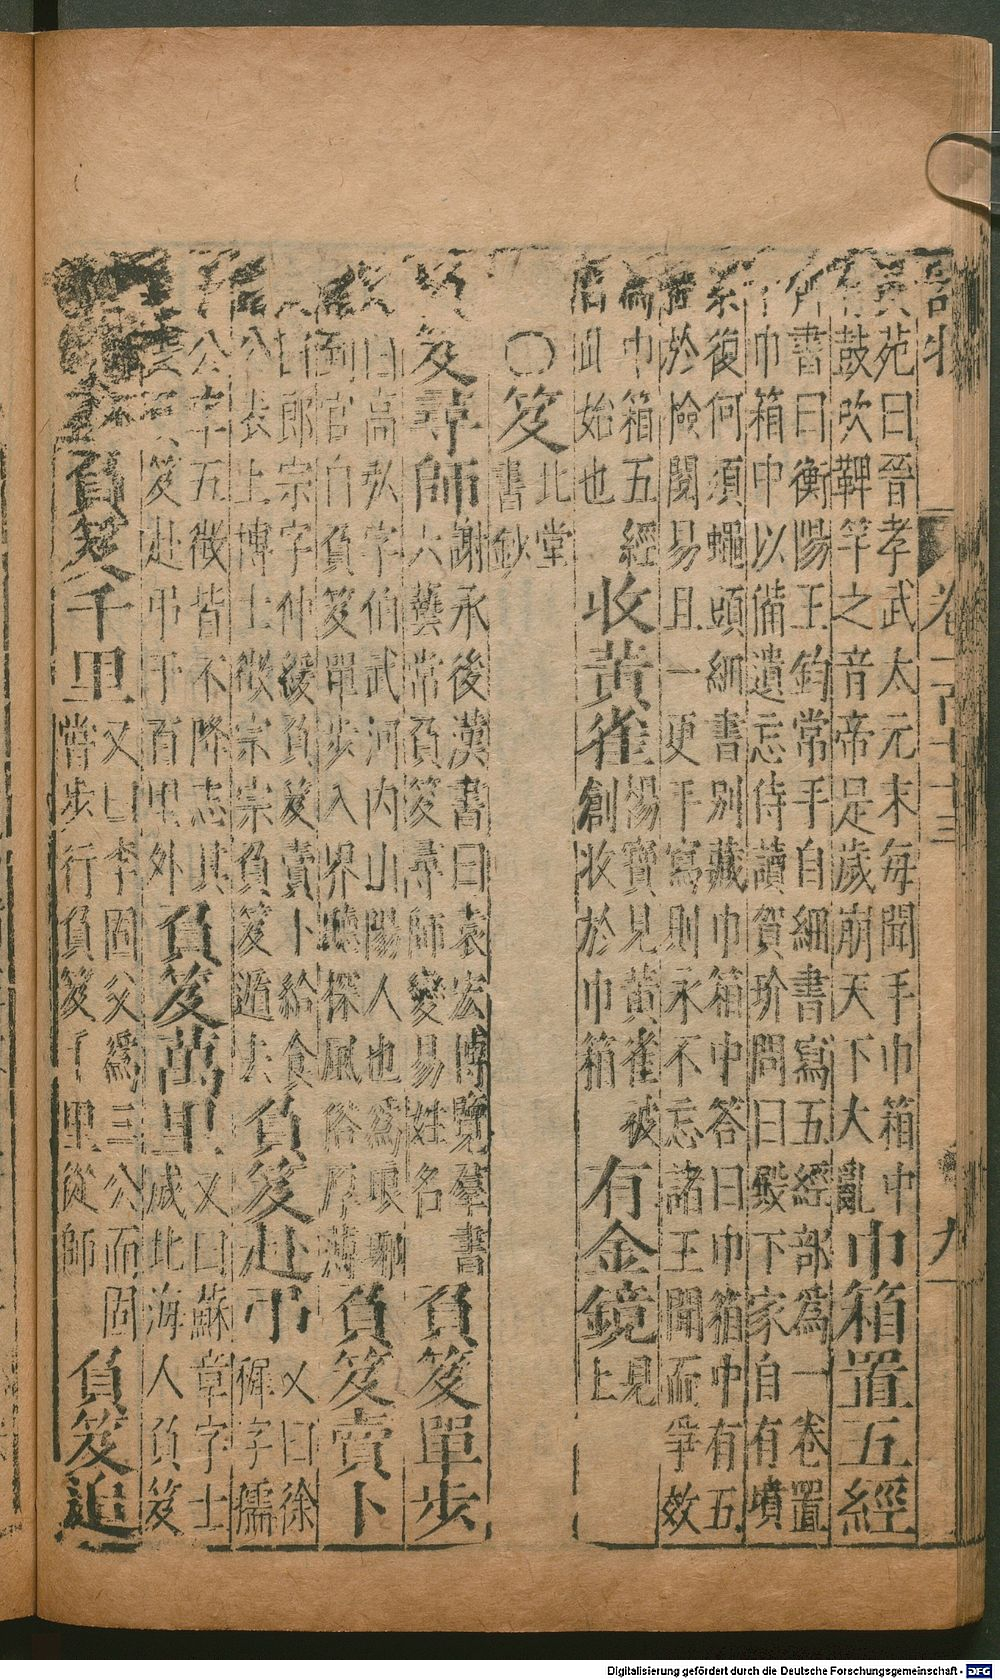 卷一百七十三 九
苑曰晉孝武太元末每聞手巾箱中
鼓吹鞞竿之音帝是歲崩天下大亂
巾箱置五經
書曰衡陽王鈞常手自細書寫五經部為一卷置
巾箱中以備遺忘侍讀賀玠問曰殿下家自有墳
素復何須蠅頭細書別藏巾箱中答曰巾箱中有五
於檢閱易且一更手寫則永不忘諸王聞而爭效
為巾箱五經
自此始也
收黃雀
楊寶見黃雀被
創收於巾箱
有金鏡
見
上
○笈
北堂
書鈔
負笈尋師
謝承後漢書曰袁宏博覽羣書
六龔常負笈尋師變易姓名
負笈單步
又曰高弘字伯武河內山陽人也為琅邪
到官自負笈單步入界聽採風俗厚薄
負笈賣卜
又曰郎宗字仲綏負笈賣卜給食
公表上博士徵宗宗負笈遁去
負笈赴弔
又曰徐
穉字孺
子公車五徵皆不降志其
喪負笈赴弔千百里外
負笈萬里
又曰蘇章字士
成北海人負笈
負笈千里
又曰李固父為三公而固
嘗步行負笈千里從師
負笈追
Digitalisierung gefördert durch die Deutsche Forschungsgemeinschaft - DFG